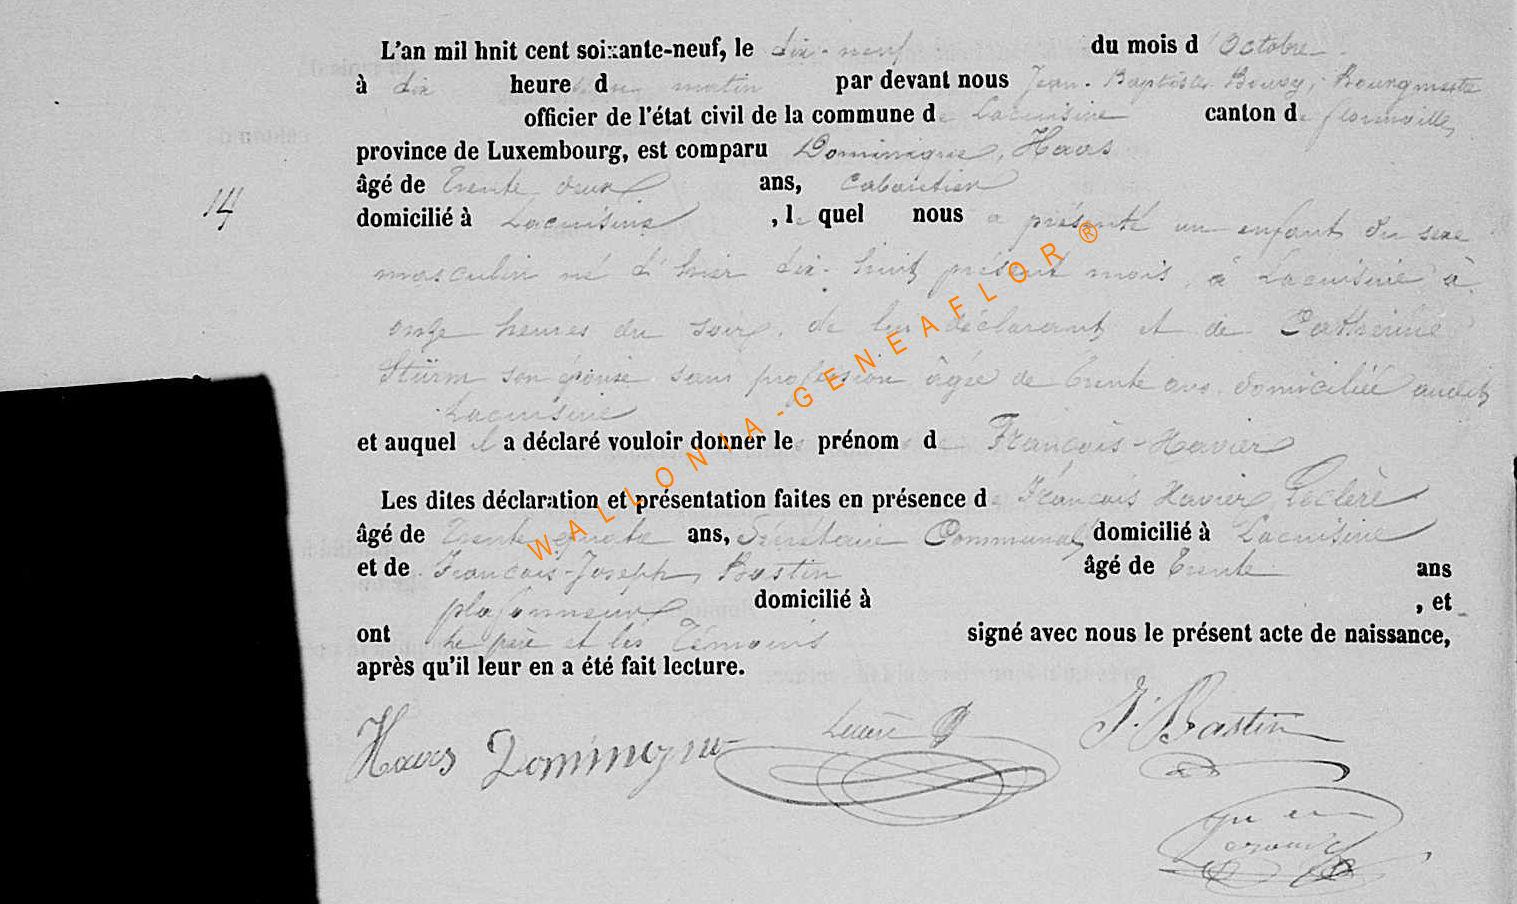 L'an mil hnit cent soixante-neuf, le dix-neuf du mois d'Octobre
à dix heures du matin par devant nous Jean-Baptiste Bourgmestre
officier de l'état civil de la commune de Lacuisine canton de florenville,
province de Luxembourg, est comparu Dominique, Haas
âgé de Trente deux ans, Cabaretier
14
domicilié à Lacuisine, le quel nous a présenté un enfant du sexe
masculin né d'hier dix-huit présent mois, à Lacuisine à
onze heures du soir, de lui déclarant et de Catherine
Stürm son épouse sans profession âgée de Trente ans domiciliée audit
Lacuisine
et auquel il a déclaré vouloir donner le prénom de François-Xavier
Les dites déclaration et présentation faites en présence de François Xavier Leclère
âgé de Trente quatre ans, Secrétaire Communal domicilié à Lacuisine
et de François-Joseph Bastin âgé de Trente ans
plafonneur domicilié à , et
ont le père et les Témoins signé avec nous le présent acte de naissance,
après qu'il leur en a été fait lecture.
Haas Dominique
Leclère
J. Bastin
WALLONIA-GENEAFLOR®